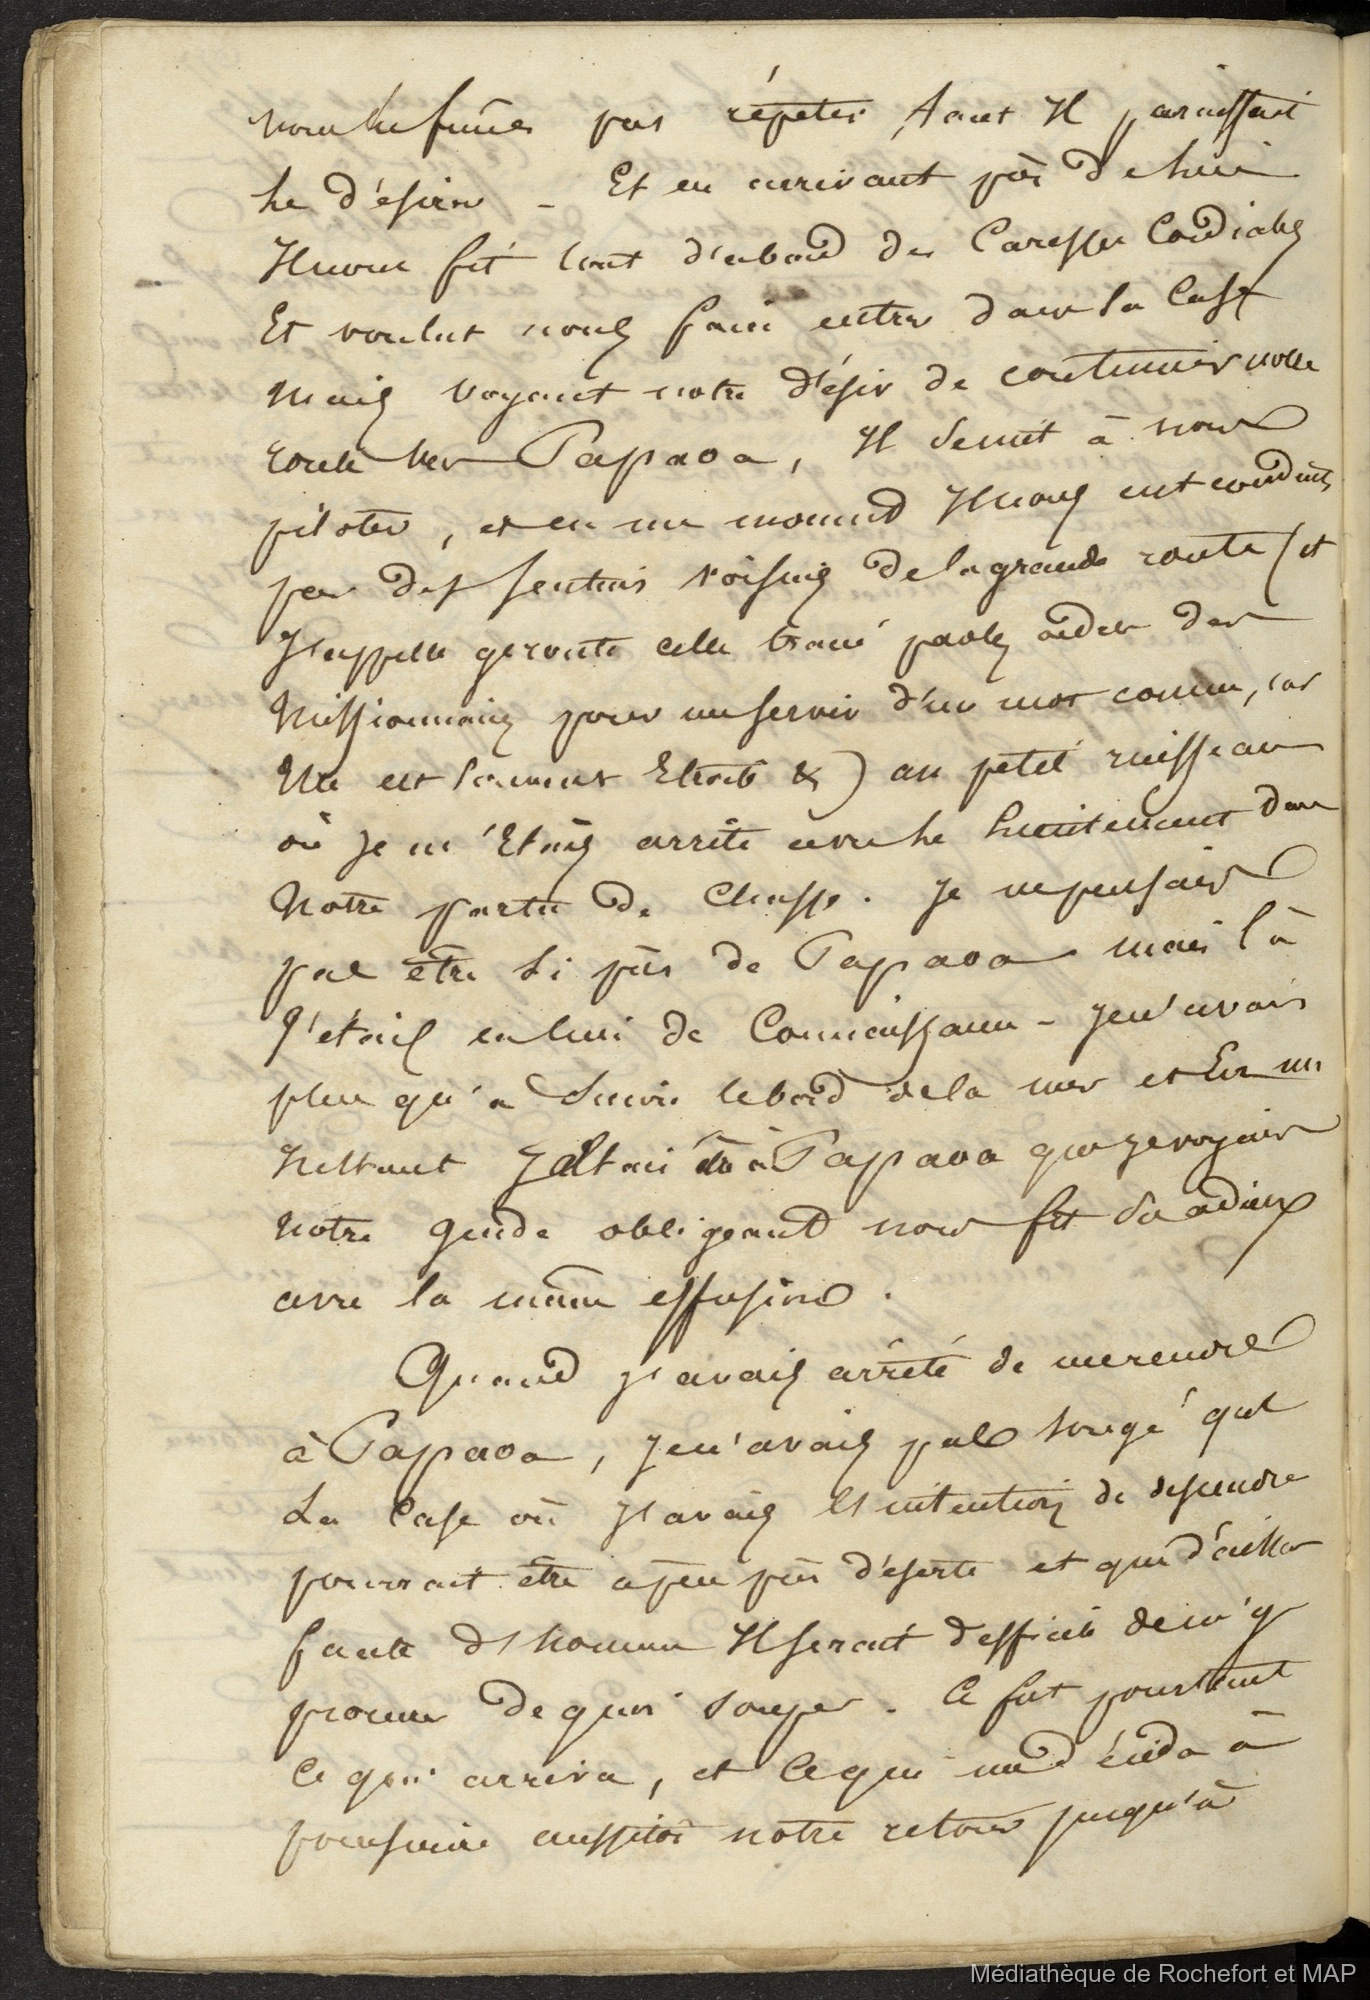 nous le fîmes pas répeter, tant Il paraissait
le désirer _ Et en arrivant près de lui
Il nous fit tout d'abord des Caresses Cordiales
Et voulut nous faire entrer dans sa Case
mais voyant notre désir de continuer notre
route vers Papaoa, Il se mit à nous
piloter, et en un moment Il nous eut conduits
par des sentiers voisins de la grande route (et
J'appelle gr route celle tracé par les ordres des
Missionnaires pour me servir d'un mot connu, car
Elle est souvent Etroite &) au petit ruisseau
où Je m'Etais arrêté avec le Lieutenant dans
Notre partie de Chasse. Je ne pensais
pas être si près de Papaoa mais là
J'etais en lieu de Connaissance _ Je n'avais
plus qu'à suivre le bord de la mer et En un
Instant J'étais à Papaoa que je voyais
Notre guide obligeant nous fit ses adieux
avec la même effusion.
Quand J'avais arrêté de me rendre
à Papaoa, Je n'avais pas songé que
La Case où J'avais l'intention de descendre
pourrait être à peu près déserte et que d'ailleurs
faute d'hommes Il serait difficile de m'y
procurer de quoi souper. Ce fut pourtant
Ce qui arriva, et Ce qui me décida à
poursuivre aussitôt notre retour jusqu'à
Médiathèque de Rochefort et MAP